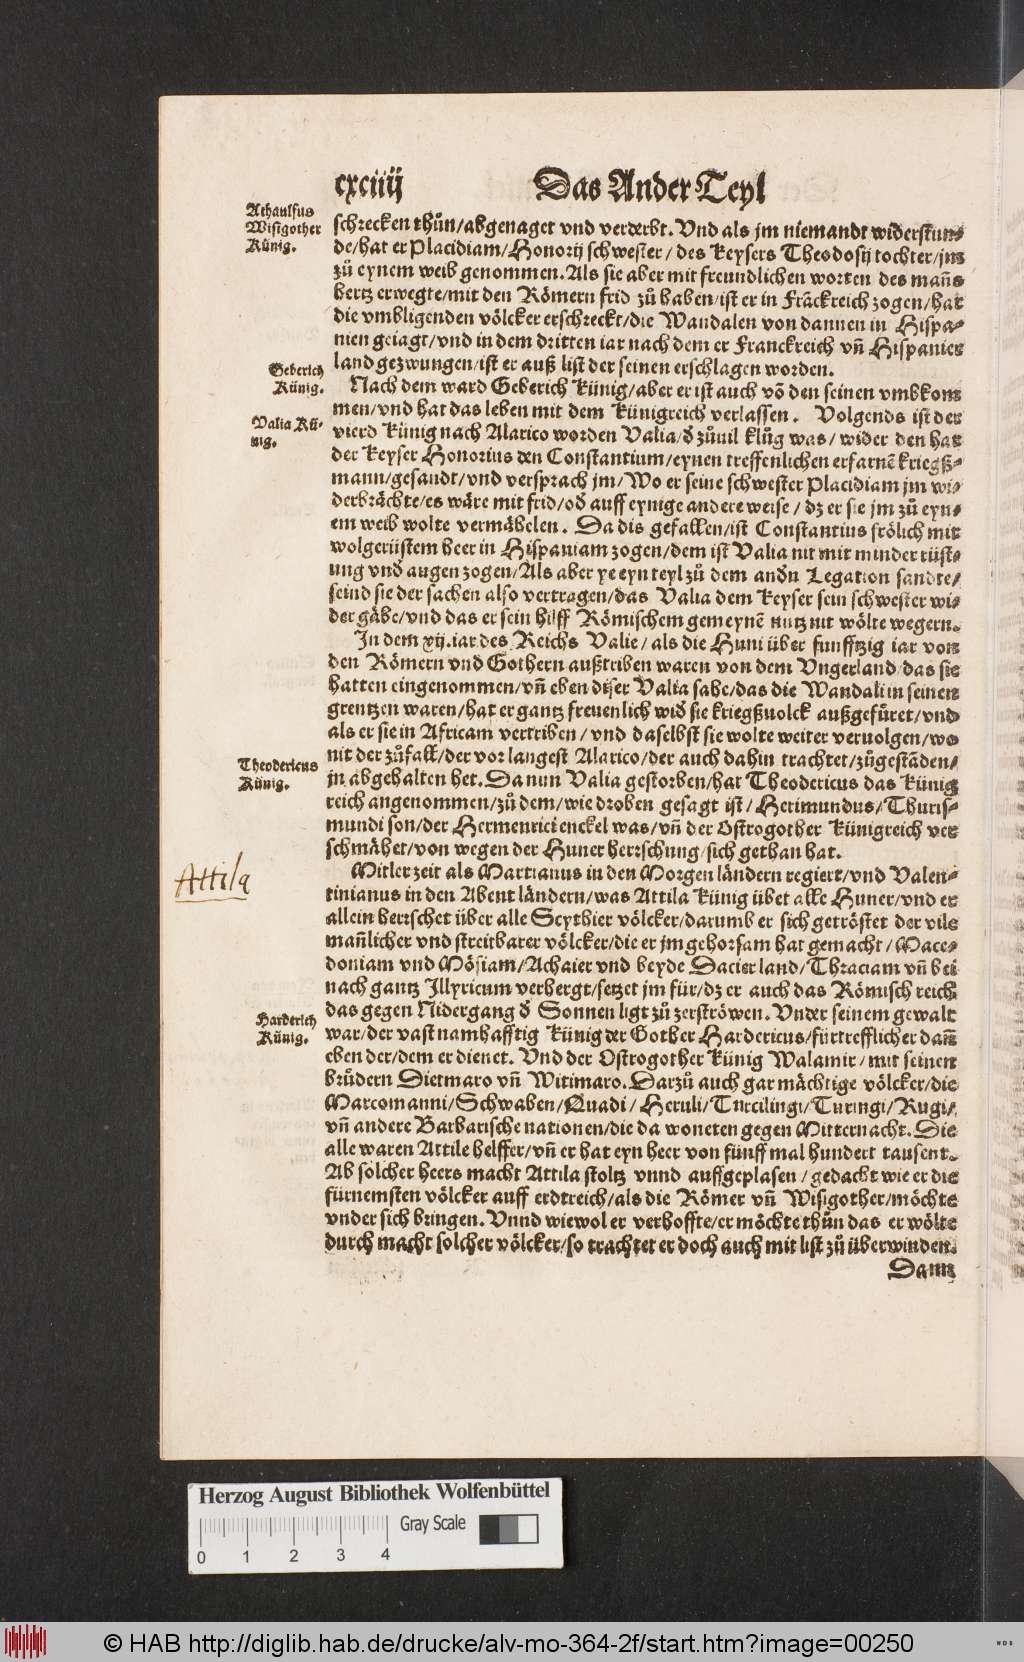 cxciiij
Das Ander Teyl
Athaulfus
Wisigother
Künig.
schrecken thůn/abgenaget vnd verderbt. Vnd als jm niemandt widerstun⸗
de/hat er Placidiam/Honorij schwester/des Keysers Theodosij tochter/jm
zů eynem weib genommen. Als sie aber mit freundlichen worten des mañs
hertz erwegte/mit den Römern frid zů haben/ist er in Frãckreich zogen/hat
die vmbligenden völcker erschreckt/die Wandalen von dannen in Hispa⸗
nien geiagt/vnd in dem dritten iar nach dem er Franckreich vñ Hispanier
land gezwungen/ist er auß list der seinen erschlagen worden.
Geberich
Künig.
Nach dem ward Geberich Künig/aber er ist auch võ den seinen vmbkom
men/vnd hat das leben mit dem Künigreich verlassen. Volgends ist der
Valia Kü⸗
nig.
vierd Künig nach Alarico worden Valia/ď zůuil klůg was/wider den hat
der Keyser Honorius den Constantium/eynen treffenlichen erfarnẽ kriegß⸗
mann/gesandt/vnd versprach jm/Wo er seine schwester Placidiam jm wi⸗
derbrächte/es wäre mit frid/oď auff eynige andere weise/dz er sie jm zů eyn⸗
em weib wolte vermähelen. Da dis gefallen/ist Constantius frölich mit
wolgerüstem heer in Hispaniam zogen/dem ist Valia nit mit minder rüst⸗
ung vnď augen zogen/Als aber ye eyn teyl zů dem anďn Legation sandte/
seind sie der sachen also vertragen/das Valia dem Keyser sein schwester wi⸗
der gäbe/vnd das er sein hilff Römischem gemeynẽ nutz nit wölte wegern.
In dem xij.iar des Reichs Valie/als die Huni über funfftzig iar von
den Römern vnd Gothern außtriben waren von dem Vngerland/das sie
hatten eingenommen/vñ eben diser Valia sahe/das die Wandali in seinen
grentzen waren/hat er gantz freuenlich wiď sie kriegßuolck außgefüret/vnd
als er sie in Africam vertriben/vnd daselbst sie wolte weiter veruolgen/wo
nit der zůfall/der vor langest Alarico/der auch dahin trachtet/zůgestãden/
Theodericus
Künig.
jn abgehalten het. Da nun Valia gestorben/hat Theodericus das Künig
reich angenommen/zů dem/wie droben gesagt ist/Herimundus/Thuris⸗
mundi son/der Hermenrici enckel was/vñ der Ostrogother Künigreich ver
schmähet/von wegen der Huner herrschung/sich gethan hat.
Attila
Mitler zeit als Martianus in den Morgen ländern regiert/vnd Valen⸗
tinianus in den Abent ländern/was Attila Künig übet alle Huner/vnd er
allein herrschet über alle Scythier völcker/darumb er sich getröstet der vile
mañlicher vnd streitbarer völcker/die er jm gehorsam hat gemacht/Mace⸗
doniam vnd Mösiam/Achaier vnd beyde Dacier land/Thraciam vñ bei
nach gantz Illyricum verhergt/setzet jm für/dz er auch das Römisch reich
das gegen Nidergang ď Sonnen ligt zů zerströwen. Vnder seinem gewalt
Harderich
Künig.
war/der vast namhafftig Künig der Gother Hardericus/fürtrefflicher dañ
eben der/dem er dienet. Vnd der Ostrogother Künig Walamir/mit seinen
brůdern Dietmaro vñ Witimaro. Darzů auch gar mächtige völcker/die
Marcomanni/Schwaben/Quadi/Heruli/Turcilingi/Turingi/Rugi/
vñ andere Barbarische nationen/die da woneten gegen Mitternacht. Die
alle waren Attile helffer/vñ er hat eyn heer von fünff mal hundert tausent.
Ab solcher heers macht Attila stoltz vnnd auffgeplasen/gedacht wie er die
fürnemsten völcker auff erdtreich/als die Römer vñ Wisigother/möchte
vnder sich bringen. Vnnd wiewol er verhoffte/er möchte thůn das er wölte
durch macht solcher völcker/so trachtet er doch auch mit list zů überwinden.
Dann
Herzog August Bibliothek Wolfenbüttel
0 1 2 3 4
Gray Scale
© HAB http://diglib.hab.de/drucke/alv-mo-364-2f/start.htm?image=00250